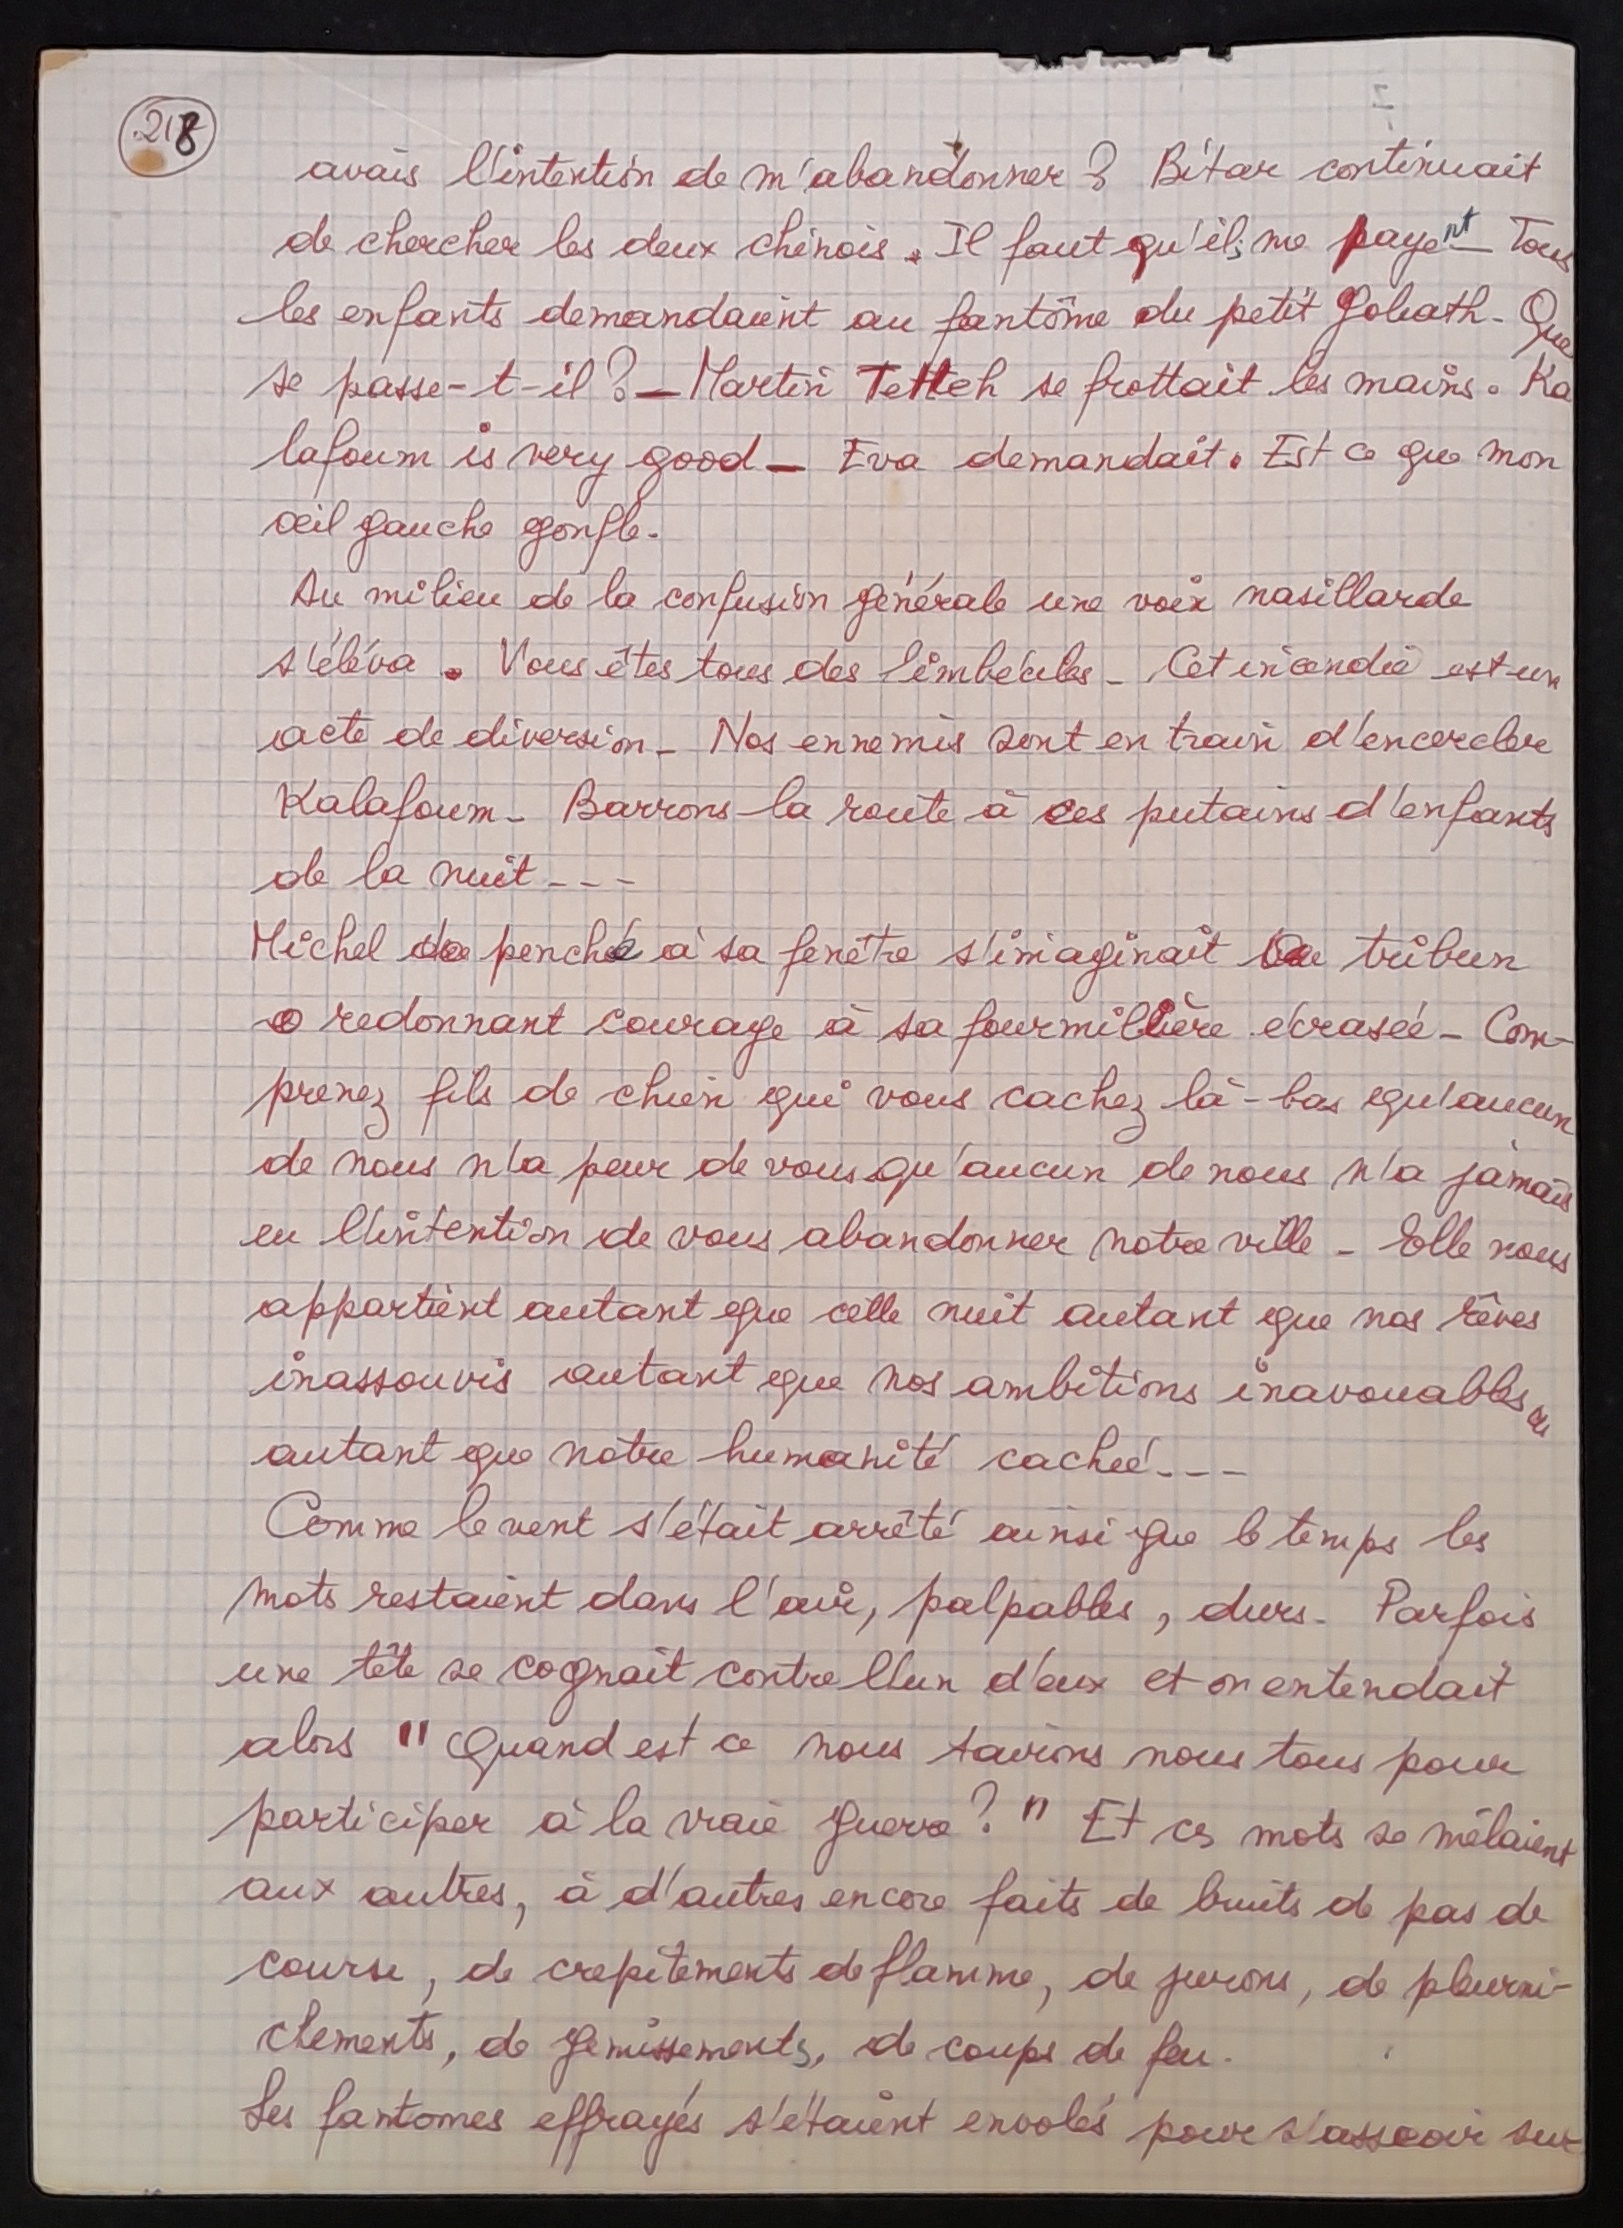 218
avais l'intention de m'abandonner ? Bitar continuait
de chercher les deux chinois. Il faut qu'ils me payent - Tous
les enfants demandaient au fantôme du petit Goliath - Que
se passe-t-il ? - Martin Tetteh se frottait les mains. Ka
lafoum is very good - Eva demandait. Est ce que mon
œil gauche gonfle.
Au milieu de la confusion générale une voix nasillarde
s'éléva. Vous êtes tous des imbéciles - Cet incendie est un
acte de diversion - Nos ennemis sont en train d'encercler
Kalafoum - Barrons la route à ces putains d'enfants
de la nuit ---
Michel penché à sa fenêtre s'imaginait tribun
redonnant courage à sa fourmilière écrasée - Com-
prenez fils de chien qui vous cachez là-bas qu'aucun
de nous n'a peur de vous qu'aucun de nous n'a jamais
eu l'intention de vous abandonner notre ville - Elle nous
appartient autant que cette nuit autant que nos rêves
inassouvis autant que nos ambitions inavouables
autant que notre humanité cachée ---
Comme le vent s'était arrêté ainsi que le temps les
mots restaient dans l'air, palpables, durs - Parfois
une tête se cognait contre l'un d'eux et on entendait
alors " Quand est ce nous savions nous tous pour
participer à la vraie guerre ? " Et ces mots se mêlaient
aux autres, à d'autres encore faits de bruits de pas de
course, de crepitements de flamme, de jurons, de pleurni-
chements, de gemissements, de coups de feu.
Les fantomes effrayés s'étaient envolés pour s'asseoir sur